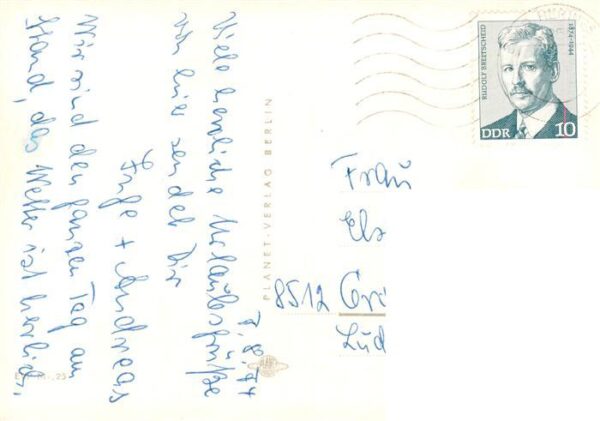 7.8.74
Viele herzliche Urlaubsgrüße
von hier sendet Dir
Inge + Andreas
Wir sind den ganzen Tag am
Stand, das Wetter ist herrlich.
PLANET-VERLAG BERLIN
RUDOLF BREITSCHEID
1874-1944
DDR 10
Frau
Els
8512 Grö
Lud